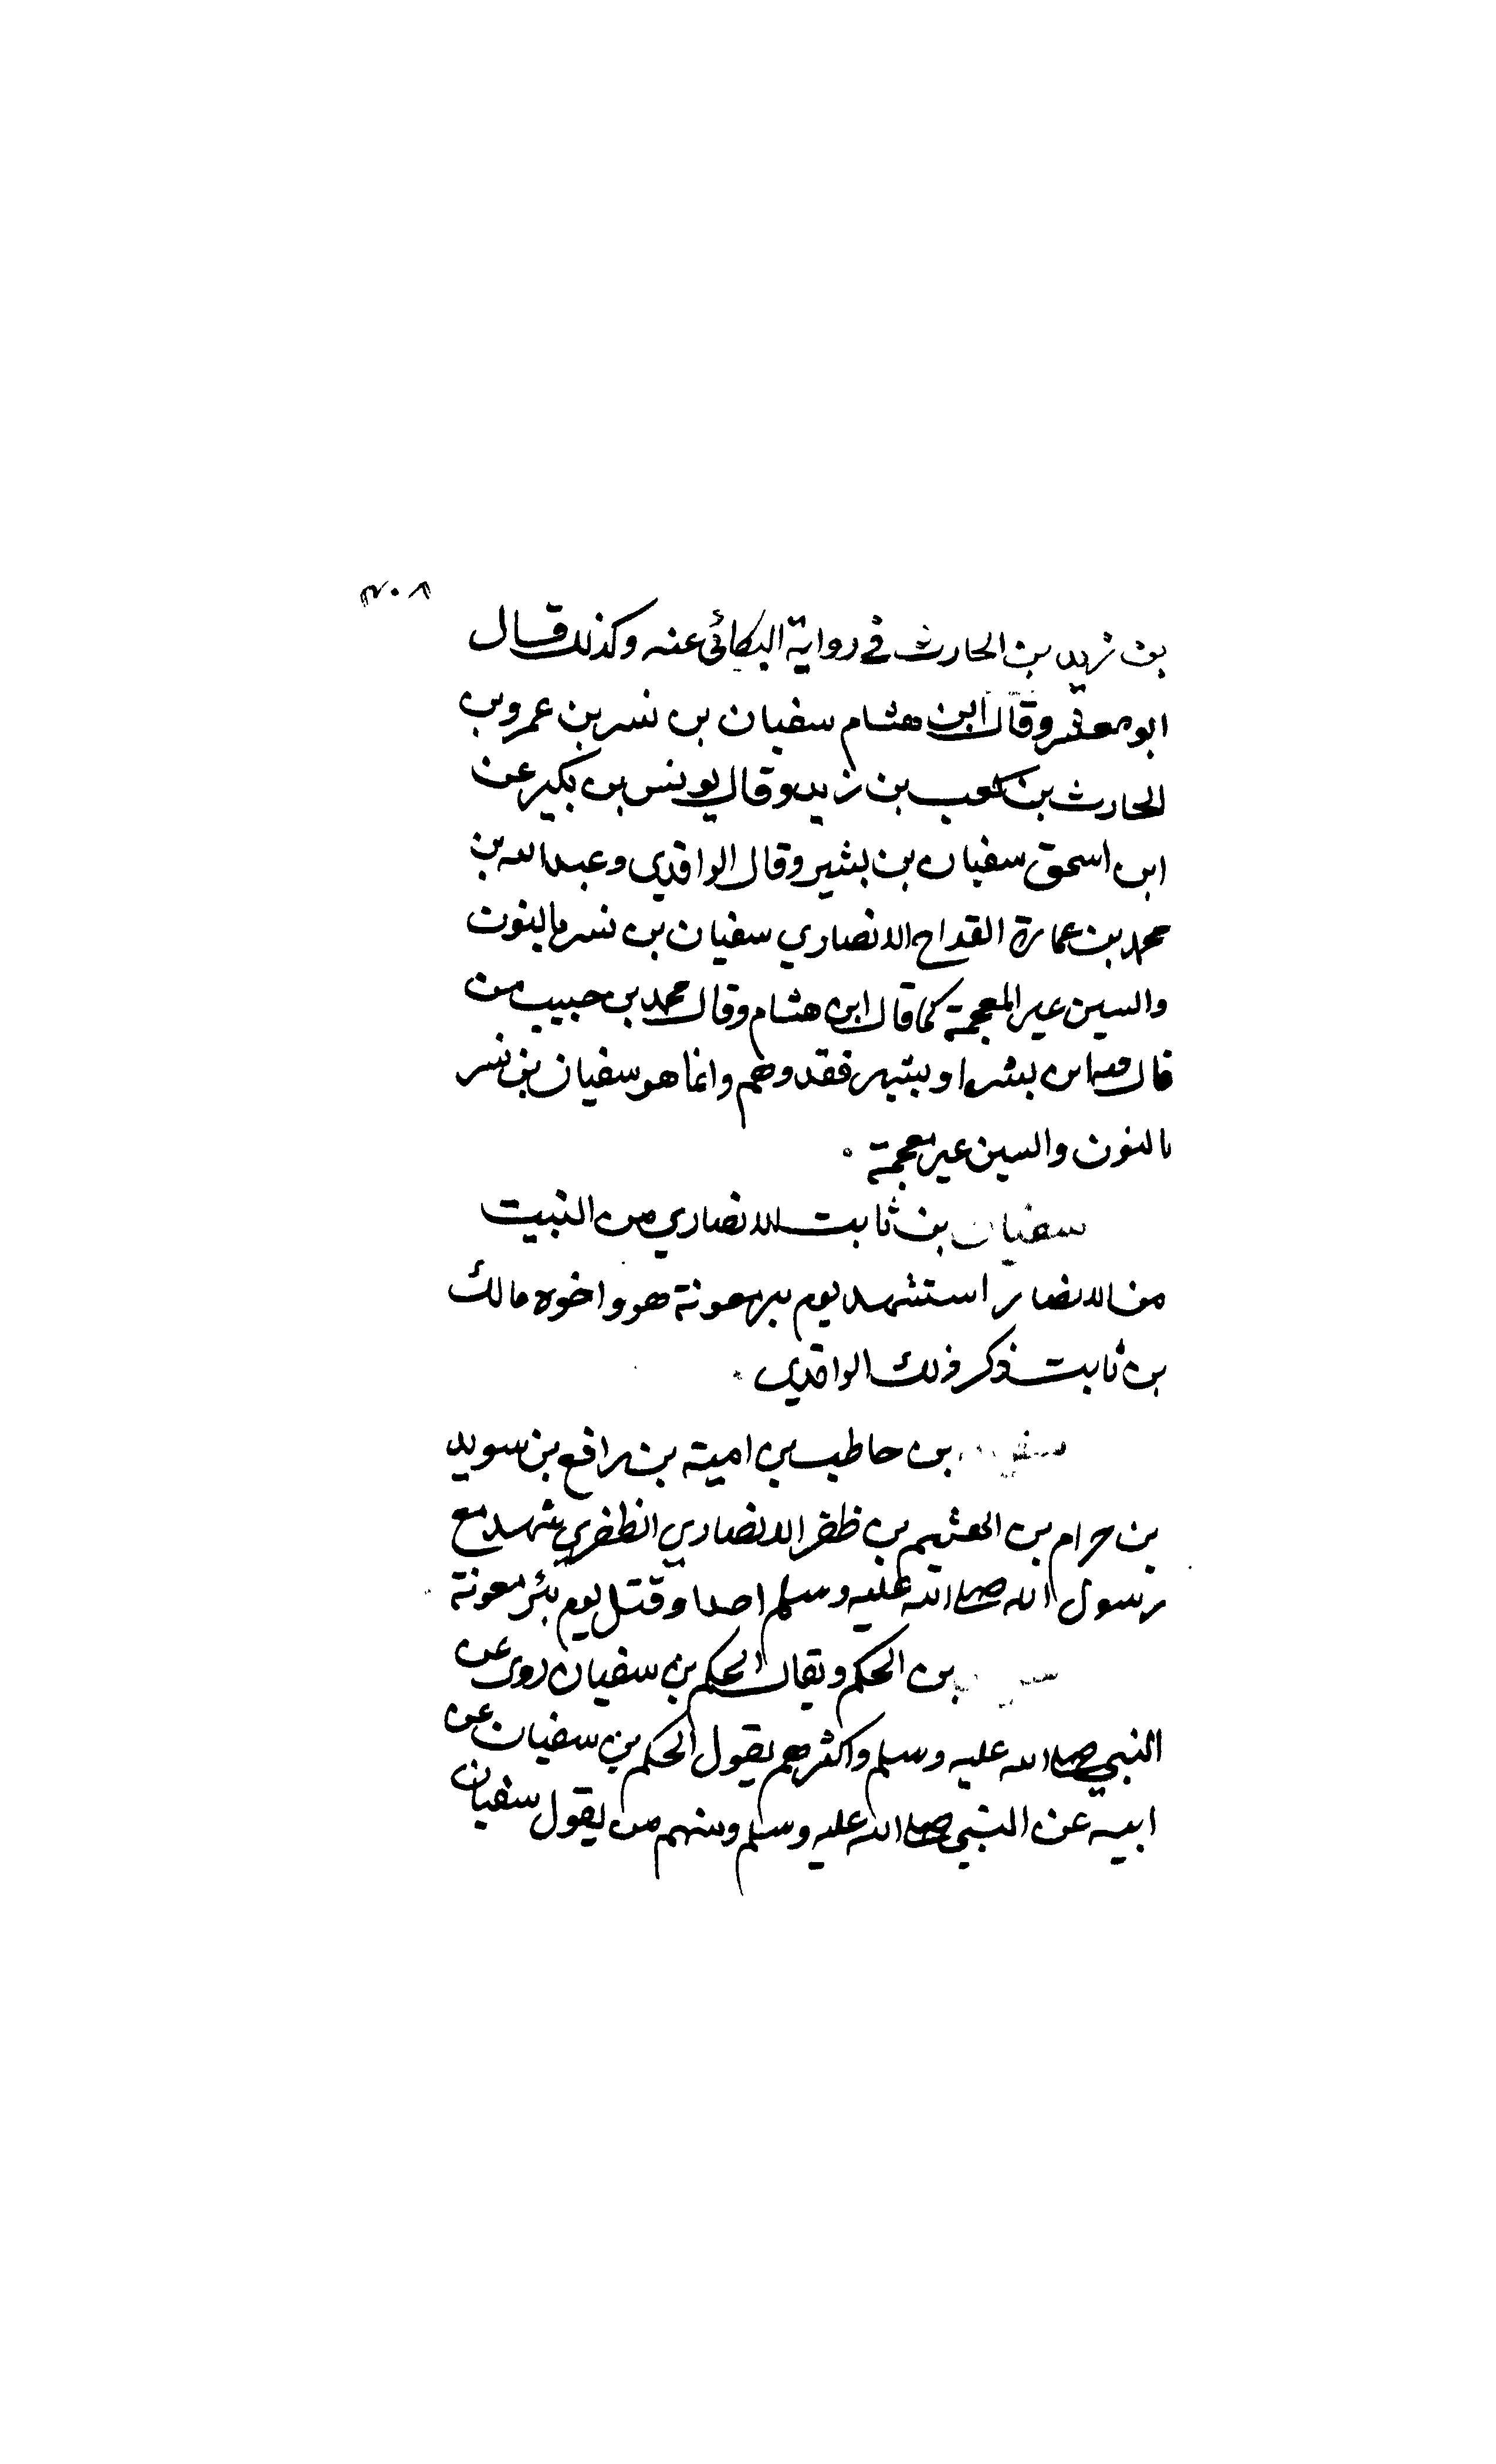 بن زيد بن الحارث في رواية البكائي عنه وكذلك قال
ابو معشر وقال ابن هشام سفيان بن نسر بن عمرو بن
الحارث بن كعب بن زيد وقال يونس بن بكير عن
ابن اسحق سفيان بن بشير وقال الواقدي وعبد الله بن
محمد بن عمارة القداح الانصاري سفيان بن نسر بالنون
والسين غير المعجمة كما قال ابن هشام وقال محمد بن حبيب من
قال فيه ابن بشر او بشير فقد وهم وانما هو سفيان بن نسر
بالنون والسين غير معجمة
سفيان بن ثابت الانصاري من النبيت
من الانصار استشهد يوم بير معونة هو واخوه مالك
بن ثابت ذكر ذلك الواقدي
سفيان بن حاطب بن امية بن رافع بن سويد
بن حرام بن الهيثم بن ظفر الانصاري الظفري شهد مع
رسول الله صلى الله عليه وسلم احدا وقتل يوم بئر معونة
بن الحكم ويقال الحكم بن سفيان روى عن
النبي صلى الله عليه وسلم واكثرهم يقول الحكم بن سفيان عن
ابيه عن النبي صلى الله عليه وسلم ومنهم من يقول سفيان